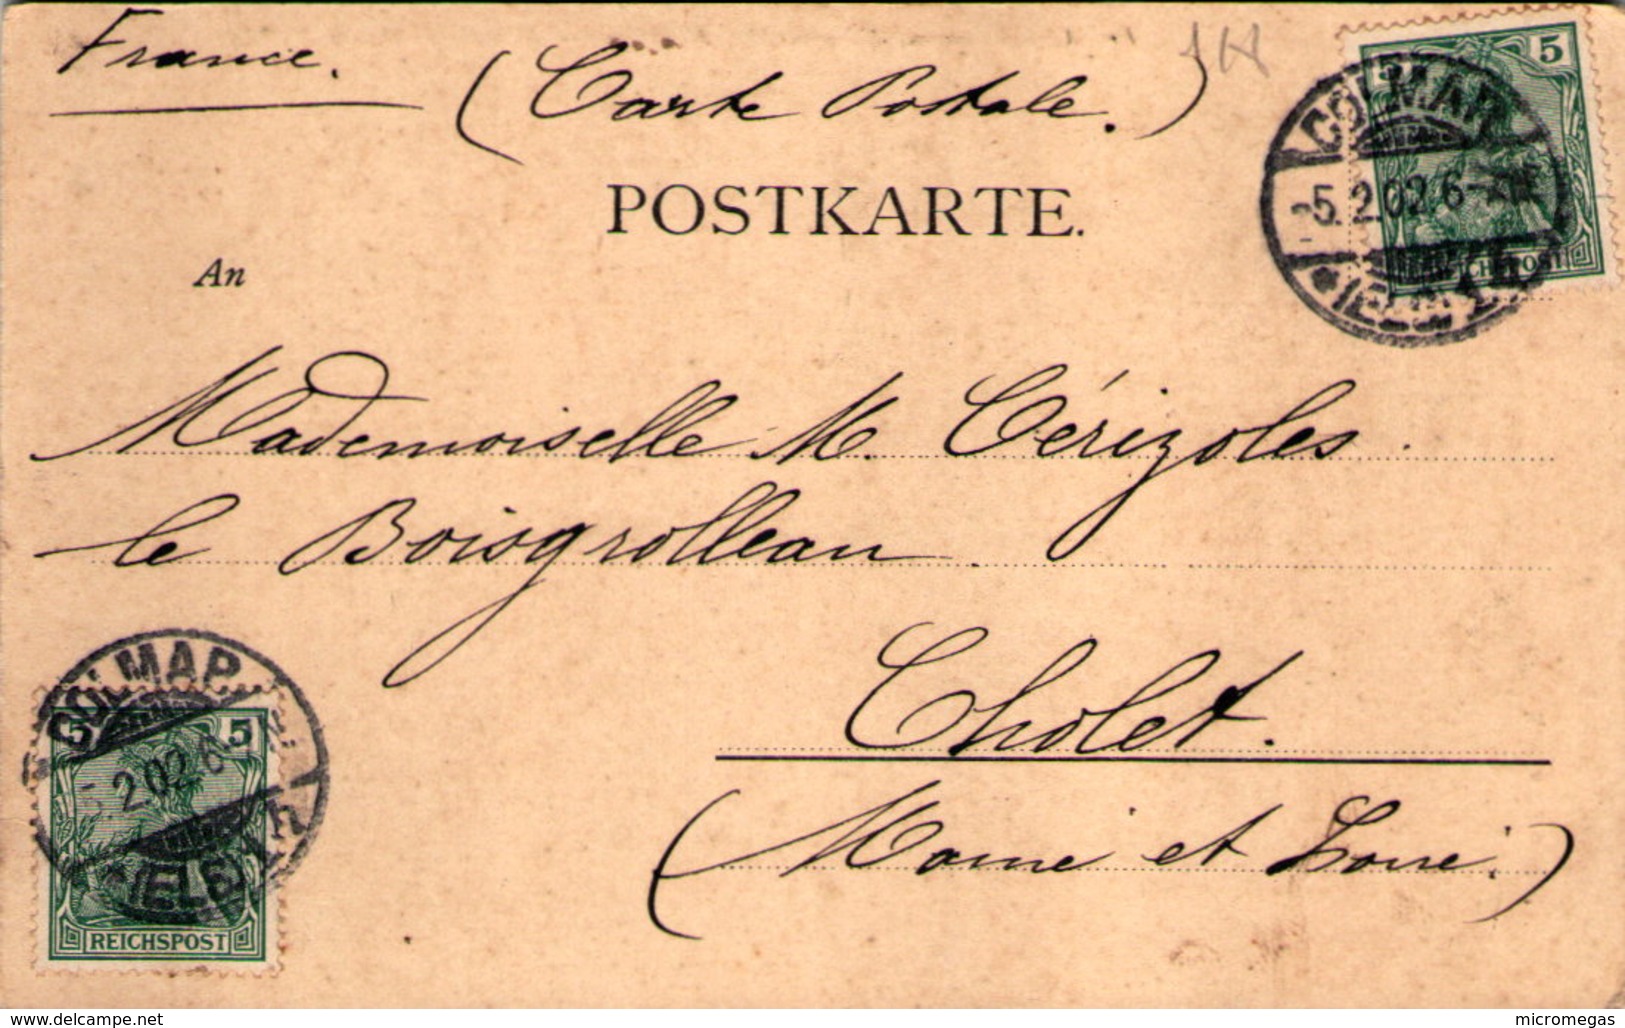 France.
(Carte Postale.)
5
5
COLMAR
5.2.02.6-
(ELS.)
REICHSPOST
POSTKARTE.
An
Mademoiselle M. Cérizoles.
le Boisgrolleau
Cholet.
(Maine et Loire.)
COLMAR
5.2.02.6
(ELS.)
5
5
REICHSPOST
www.delcampe.net
micromegas